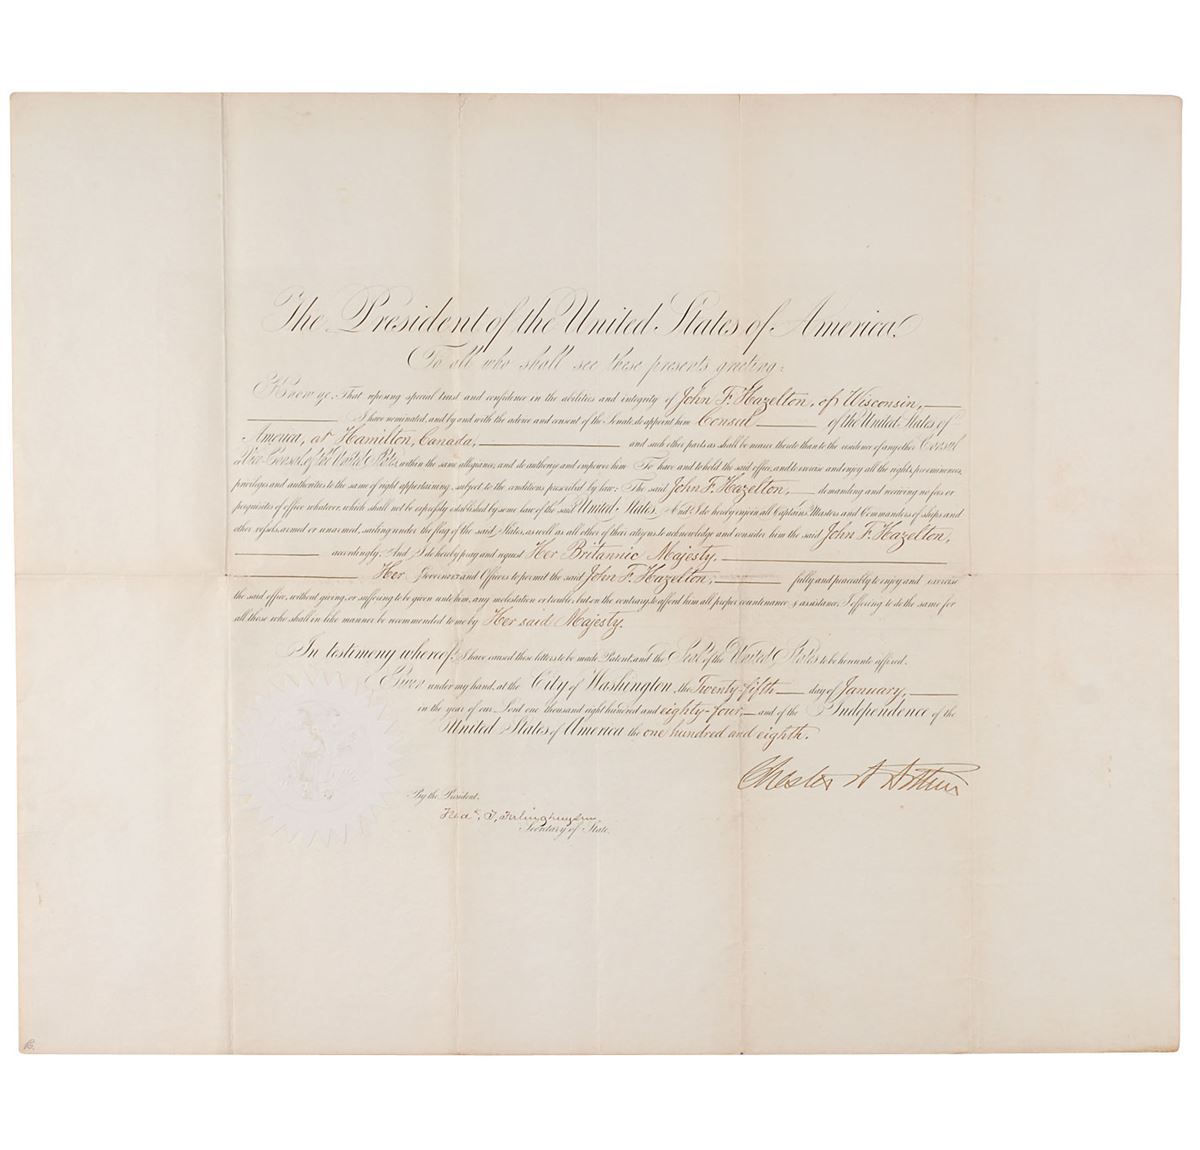 The President of the United States of America.
To all who shall see these presents, greeting:
Know ye, That reposing special trust and confidence in the abilities and integrity of John F. Hazelton, of Wisconsin,
I have nominated, and by and with the advice and consent of the Senate, do appoint him Consul of the United States of
America, at Hamilton, Canada, and such other parts as shall be nearer thereto than to the residence of any other Consul
or Vice-Consul of the United States, within the same allegiance; and do authorize and empower him To have and to hold the said office, and to exercise and enjoy all the rights, preeminences,
privileges and authorities to the same of right appertaining, subject to the conditions prescribed by law; The said John F. Hazelton, demanding and receiving no fees or
perquisites of office whatever, which shall not be expressly established by some law of the said United States. And I do hereby enjoin all Captains, Masters and Commanders of ships and
other vessels, armed or unarmed, sailing under the flag of the said States, as well as all other of their citizens to acknowledge and consider him the said John F. Hazelton,
accordingly. And I do hereby pray and request Her Britannic Majesty,
Her Governors and Officers to permit the said John F. Hazelton, fully and peaceably to enjoy and exercise
the said office, without giving, or suffering to be given unto him, any molestation or trouble, but on the contrary, to afford him all proper countenance & assistance; I offering to do the same for
all those who shall in like manner be recommended to me by Her said Majesty.
In testimony whereof, I have caused these letters to be made Patent, and the Seal of the United States to be hereunto affixed.
Given under my hand, at the City of Washington, the Twenty-fifth day of January,
in the year of our Lord one thousand eight hundred and eighty-four, and of the Independence of the
United States of America the one hundred and eighth.
Chester A Arthur
By the President:
Fredk. T. Frelinghuysen
Secretary of State.